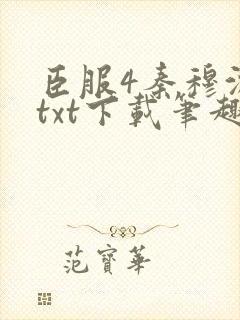 臣服4秦穆
txt下載筆趣
范寶華